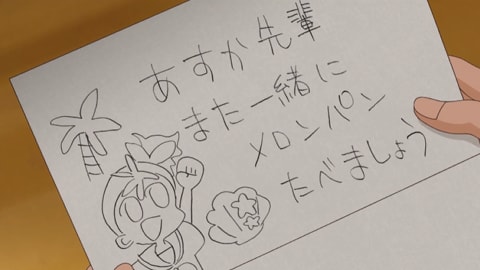 あすか先輩
また一緒に
メロンパン
たべましょう